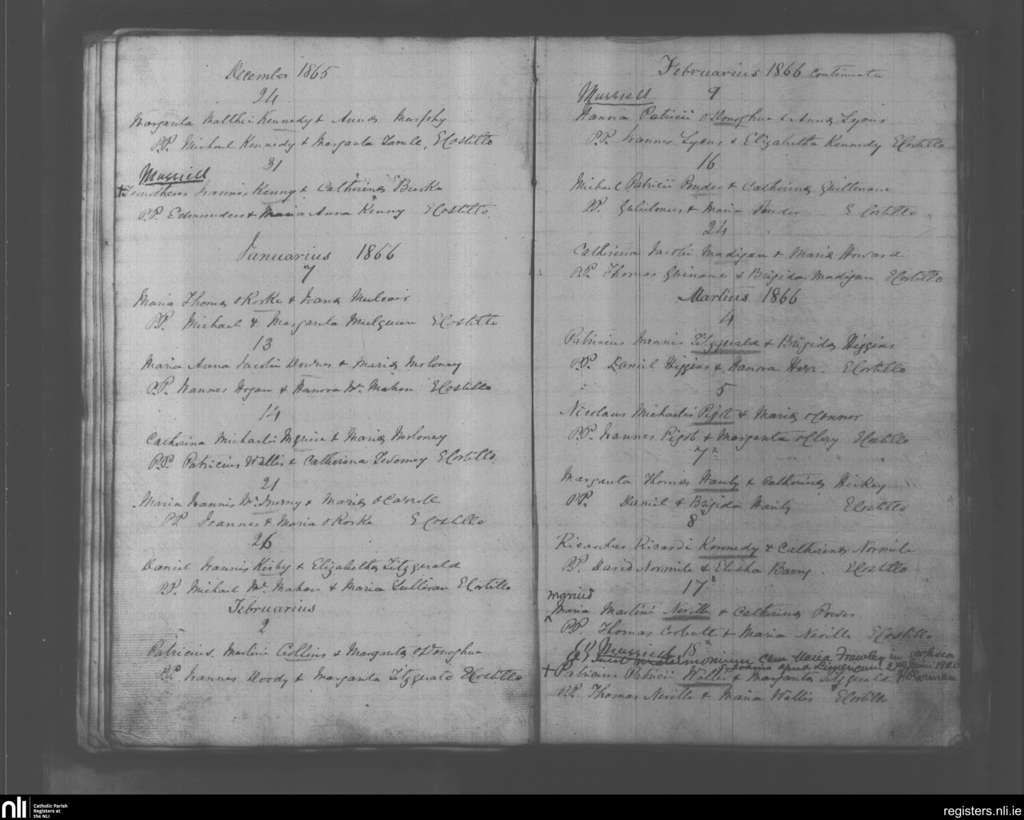 December 1865
24
Margarita Matthei Kennedy & Anna Murphy
PP. Michael Kennedy & Margarita ECostello
31
Murriell
Joannis Kenny & Catherina Burke
PP. Edmundus & Maria Anna Kenny ECostello
Januarius 1866
7
Maria Thoma O'Rorke & Joana Mulcair
PP. Michael & Margarita Mulqueen ECostello
13
Maria Anna Jacobi Downes & Maria Moloney
PP. Joannes Hogan & Hanora McMahon ECostello
14
Catherina Michaelis & Maria Moloney
PP. Patricius Wallis & Catherina Twomey ECostello
21
Maria Joannis & Maria O'Carroll
PP Joannes & Maria O'Rorke ECostello
26
Daniel Joannis Kirby & Elizabetha Fitzgerald
PP. Michael McMahon & Maria Sullivan ECostello
Februarius
2
Patricius Martini Collins & Margarita O'Donoghue
PP. Joannes Moody & Margarita Fitzgerald ECostello
Februarius 1866 continuata
Murriell 9
Hanna Patricii O'Donoghue & Anna Lyons
PP. Joannes Lyons & Elizabetha Kennedy ECostello
16
Michael Patricii Ponder & Catherina Guilinane
PP. Gulielmus & Maria Ponder ECostello
24
Catherina Jacobi Madigan & Maria Howard
PP. Thomas Guinane & Brigida Madigan ECostello
Martius 1866
4
Patricius Joannis Fitzgerald & Brigida Higgins
PP. Daniel Higgins & Hanora Herr. ECostello
5
Nicolaus Michaelis Pigot & Maria O'Connor
PP. Joannes Pigot & Margarita O'Clery ECostello
7a
Margarita Thomas Hanly & Catherina Hickey
PP. Daniel & Brigida Hanly ECostello
8
Ricardus Ricardi Kennedy & Catherina Normile
PP. David Normile & Barry. ECostello
17a
Mgrius
Maria Martini Neville & Catherina Power
PP. Thomas Corbett & Maria Neville ECostello
Murriell 18a
matrimonium cum Maria Frawley in
apud
Patricius Patricii Wallis & Margarita Fitzgerald
PP. Thomas Neville & Maria Wallis ECostello
nli
Catholic Parish
Registers at
the NLI
registers.nli.ie